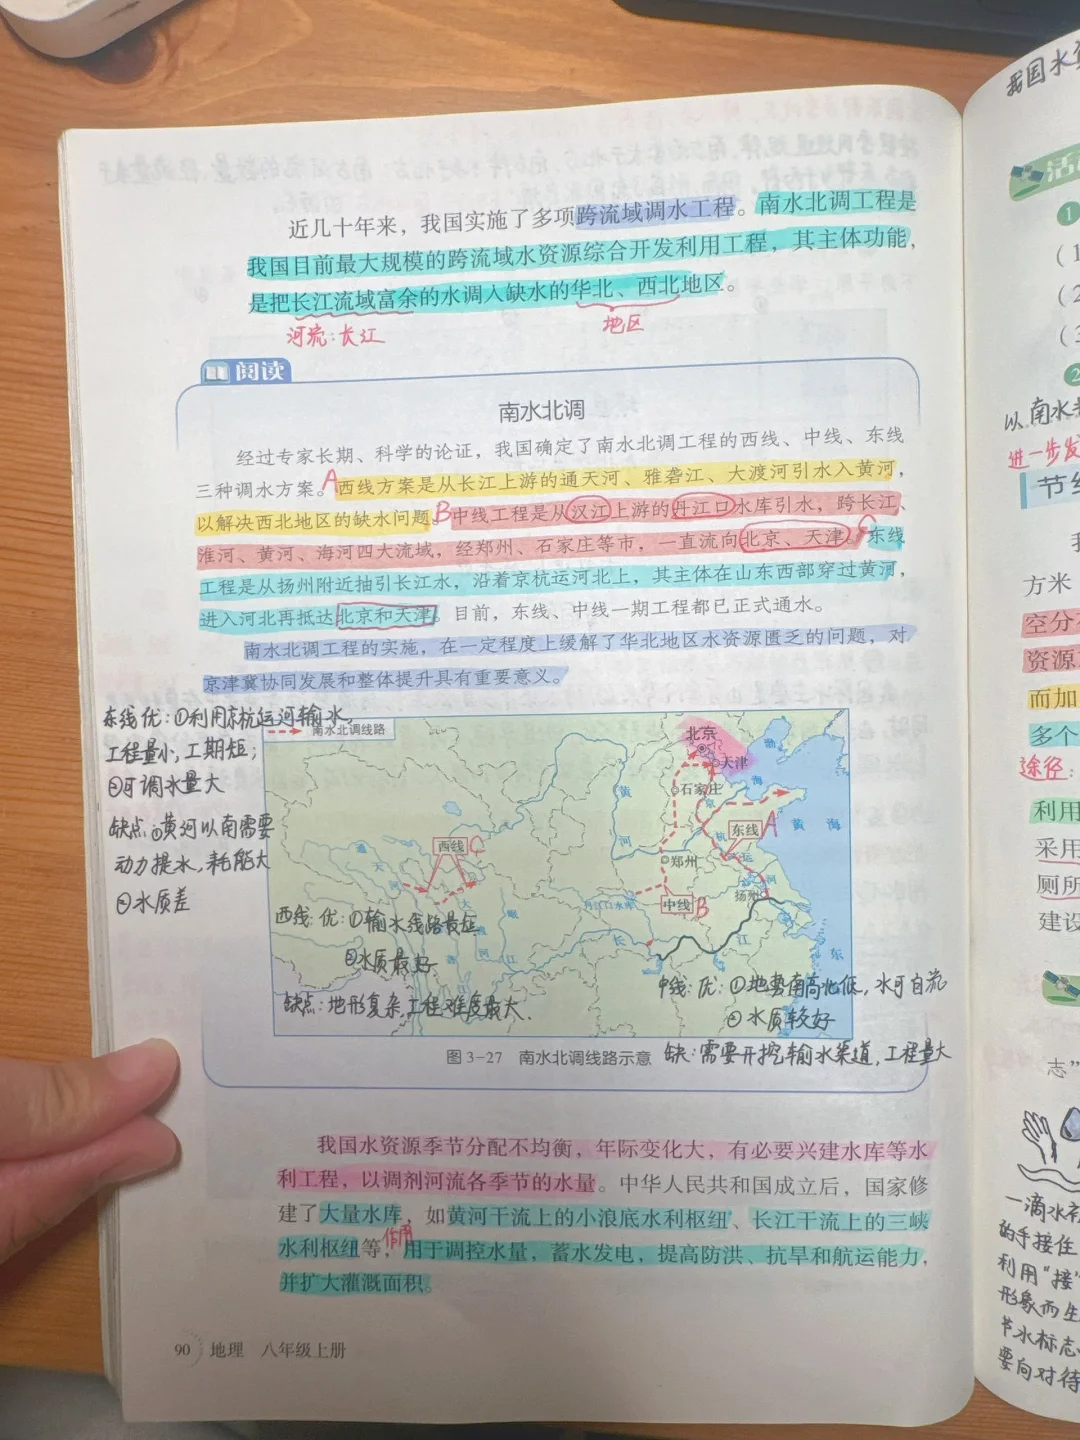 近几十年来，我国实施了多项跨流域调水工程。南水北调工程是
我国目前最大规模的跨流域水资源综合开发利用工程，其主体功能，
是把长江流域富余的水调入缺水的华北、西北地区。
河流：长江
地区
阅读
南水北调
经过专家长期、科学的论证，我国确定了南水北调工程的西线、中线、东线
三种调水方案。A西线方案是从长江上游的通天河、雅砻江、大渡河引水入黄河，
以解决西北地区的缺水问题。B中线工程是从汉江上游的丹江口水库引水，跨长江、
淮河、黄河、海河四大流域，经郑州、石家庄等市，一直流向北京、天津。C东线
工程是从扬州附近抽引长江水，沿着京杭运河北上，其主体在山东西部穿过黄河，
进入河北再抵达北京和天津。目前，东线、中线一期工程都已正式通水。
南水北调工程的实施，在一定程度上缓解了华北地区水资源匮乏的问题，对
京津冀协同发展和整体提升具有重要意义。
东线优：①利用京杭运河输水，
工程量小，工期短；
②可调水量大
缺点：①黄河以南需要
动力提水，耗能大
②水质差
南水北调线路
北京
天津
石家庄
渤
海
黄
河
黄 海
京
杭
运
河
东线 A
郑州
扬州
西线 C
通
天
河
中线 B
丹江口水库
大
渡
河
岷
江
长
江
东
西线：优：①输水线路最短
②水质最好
缺点：地形复杂，工程难度最大.
中线：优：①地势南高北低，水可自流
②水质较好
缺：需要开挖输水渠道，工程量大
图 3-27 南水北调线路示意
我国水资源季节分配不均衡，年际变化大，有必要兴建水库等水
利工程，以调剂河流各季节的水量。中华人民共和国成立后，国家修
建了大量水库，如黄河干流上的小浪底水利枢纽、长江干流上的三峡
作用
水利枢纽等，用于调控水量，蓄水发电，提高防洪、抗旱和航运能力，
并扩大灌溉面积。
90 地理 八年级上册
我国水资
活
1
(1
(2
(3
2
以南水
进一步发
节约
我
方米
空分
资源
而加
多个
途径：
利用
采用
厕所
建设
志”
一滴水
的手接住
利用“接”
形象而生
节水标志
要向对待